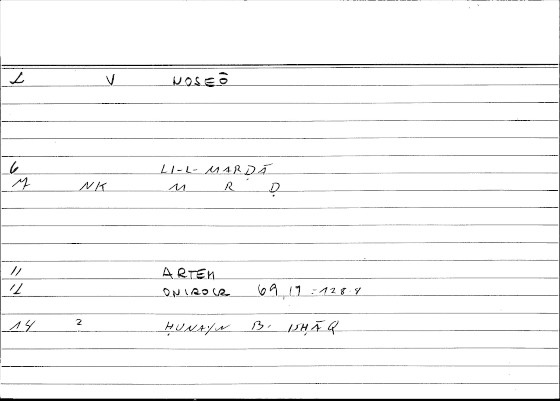 1 V NOSEŌ
6 LI-L-MARḌĀ
M NK M R Ḍ
11 ARTEM
12 ONIROCR 69,19 = 128.4
14 2 ḤUNAYN B. ISḤĀQ